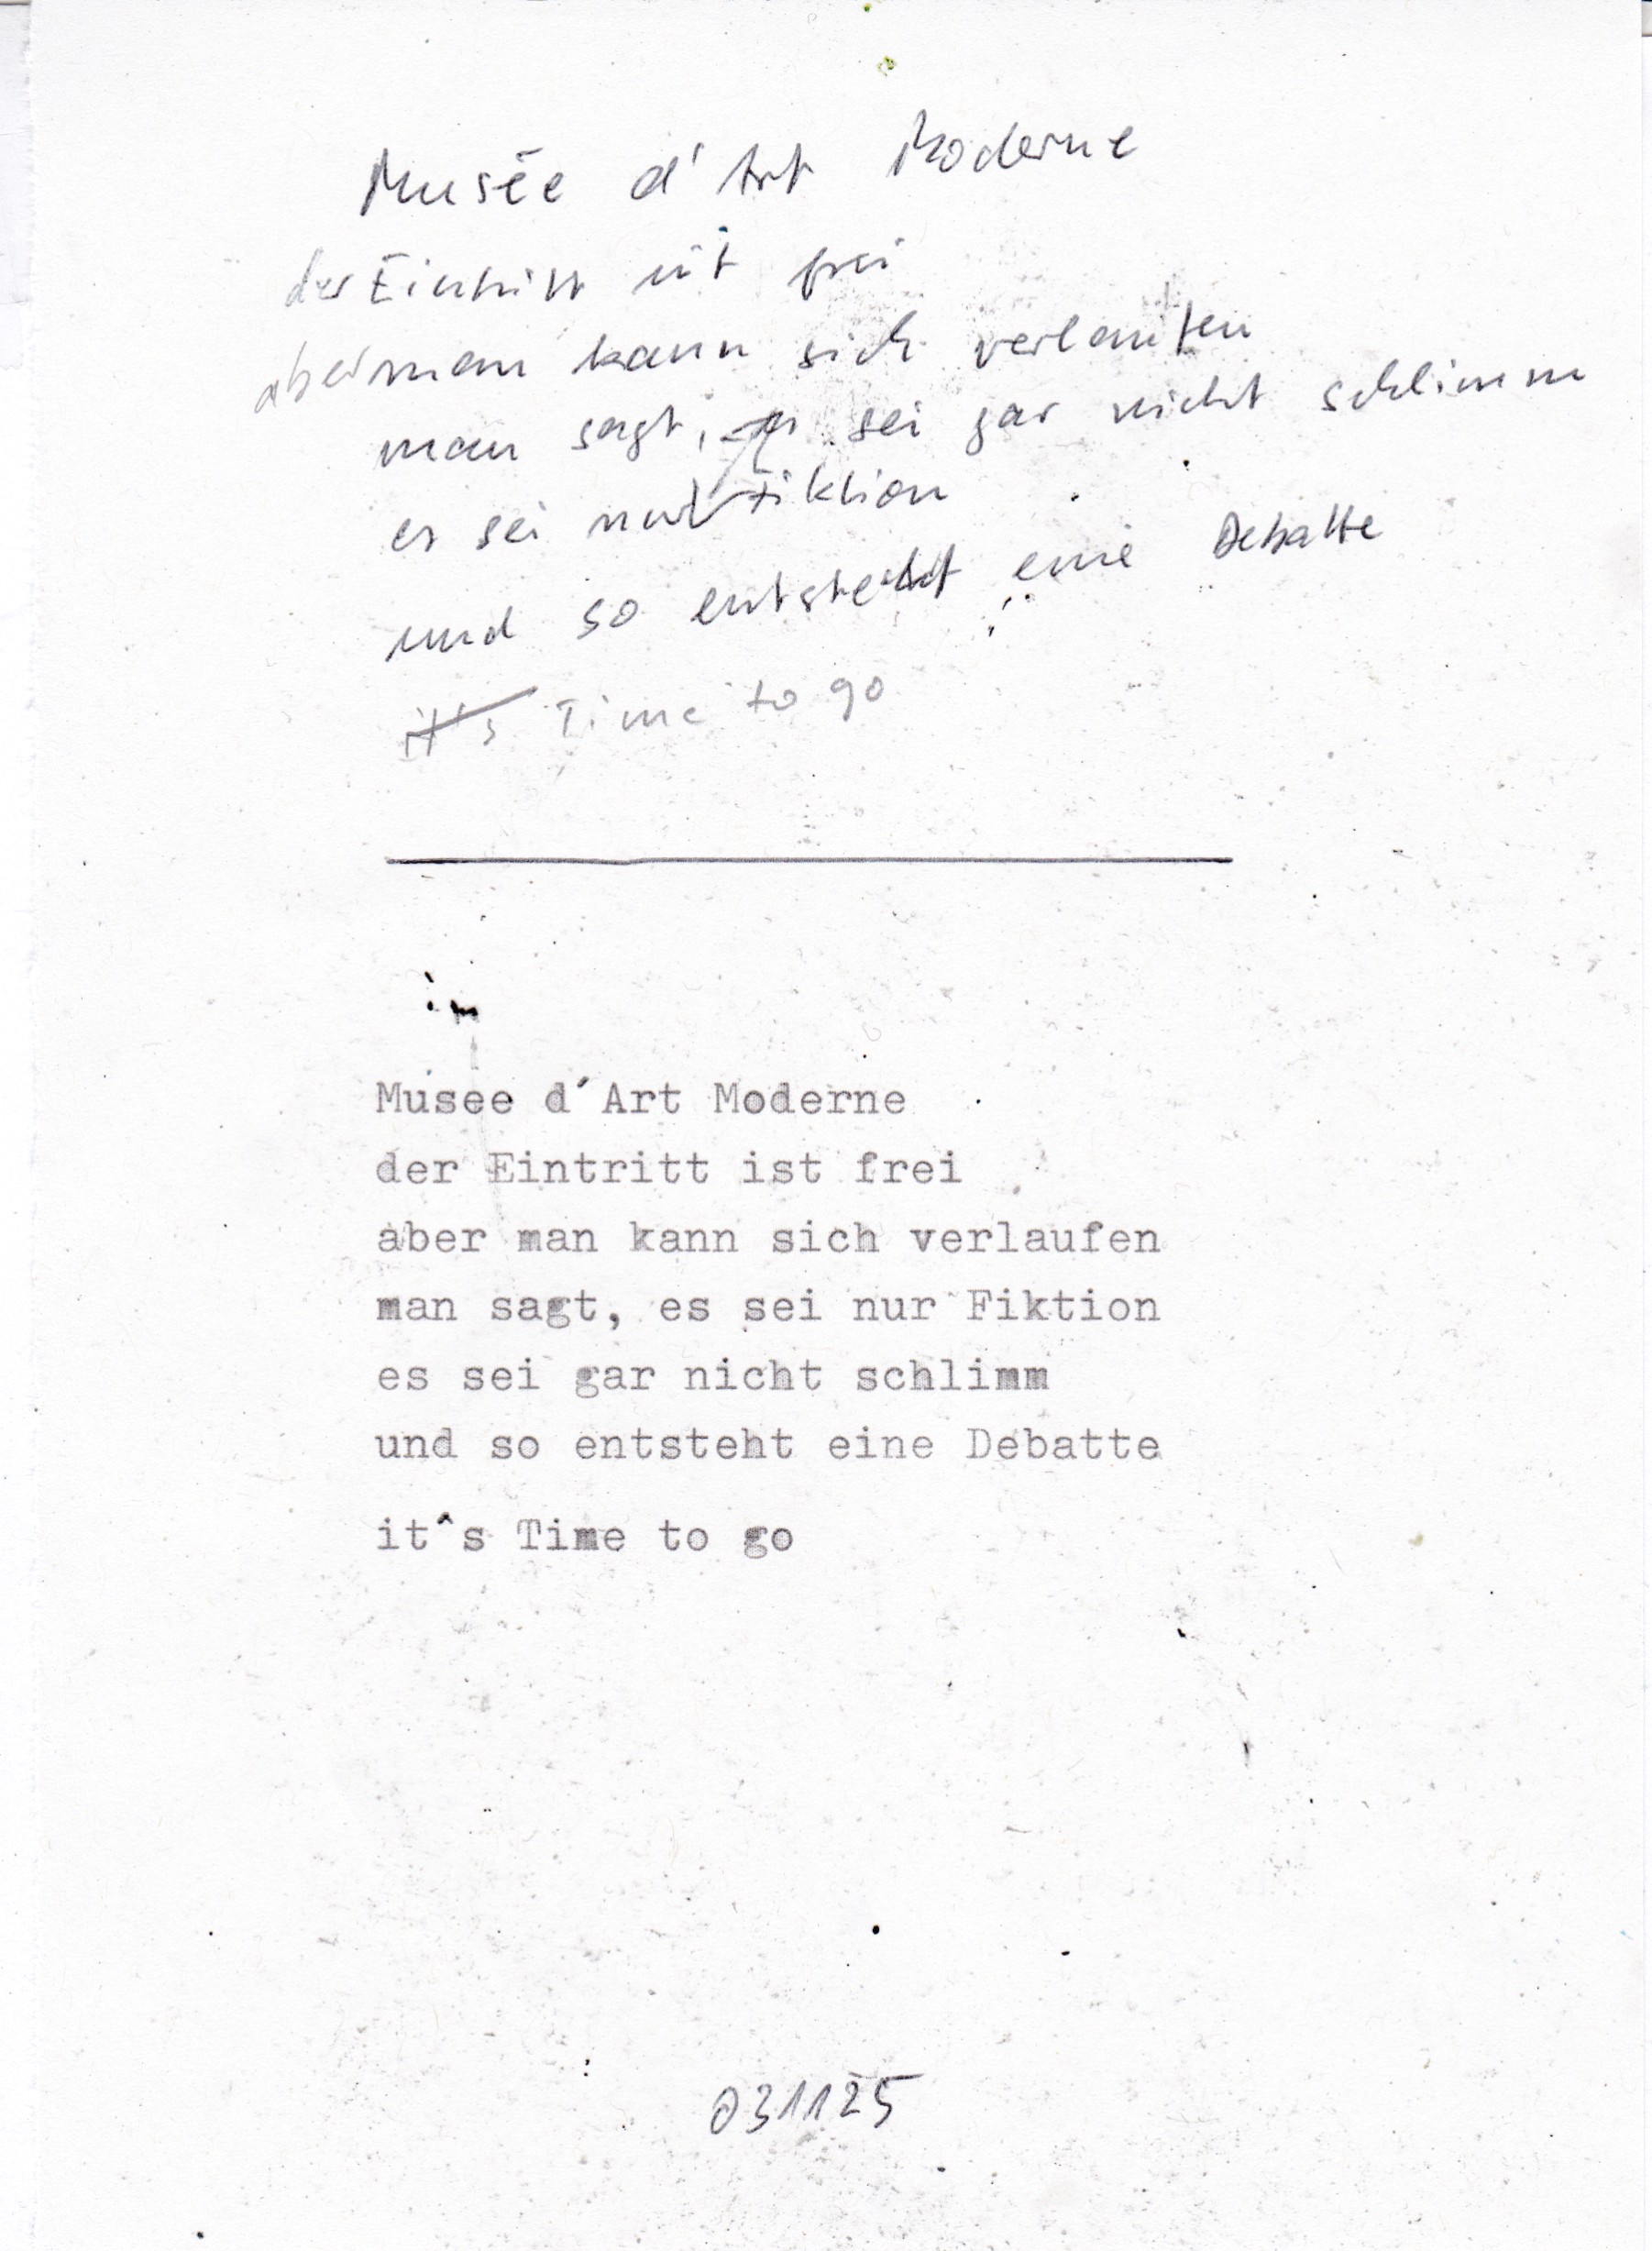 Musée d'Art Moderne
der Eintritt ist frei
aber man kann sich verlaufen
man sagt, es sei gar nicht schlimm
es sei nur Fiktion
und so entsteht eine Debatte
it's Time to go
im
Musee d´Art Moderne
der Eintritt ist frei
aber man kann sich verlaufen
man sagt, es sei nur Fiktion
es sei gar nicht schlimm
und so entsteht eine Debatte
it^s Time to go
031125